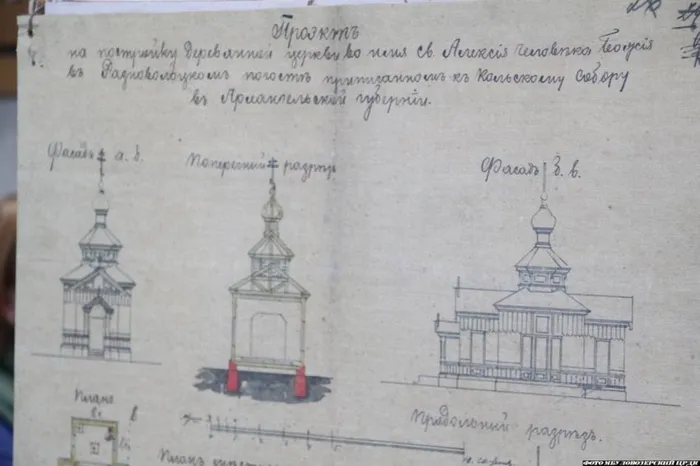 Проэктъ
на постройку деревянной церкви во имя Св. Алексія Человѣка Божія
въ погостѣ приписанномъ къ Кольскому Собору
въ Архангельской губерніи.
Фасадъ а. б.
Поперечный разрѣзъ
Фасадъ б. в.
Планъ
в
Продольный разрѣзъ.
Планъ
ФОТО МБУ ЛОВОЗЕРСКИЙ ЦРДК